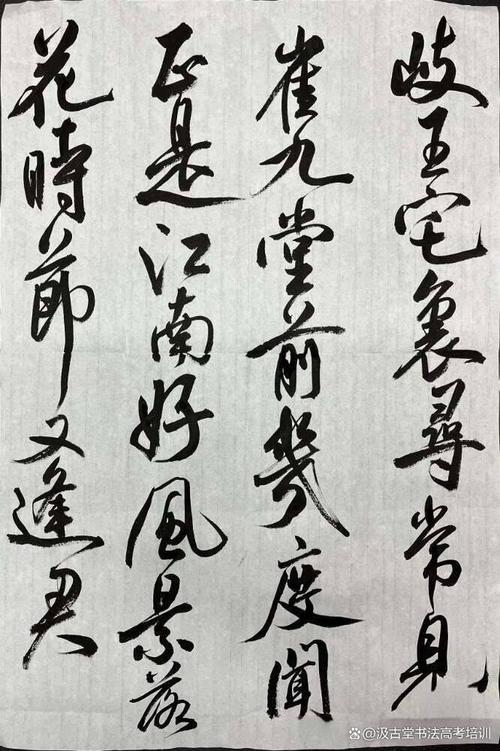 岐王宅裏尋常見
崔九堂前幾度聞
正是江南好風景落
花時節又逢君
@汲古堂书法高考培训